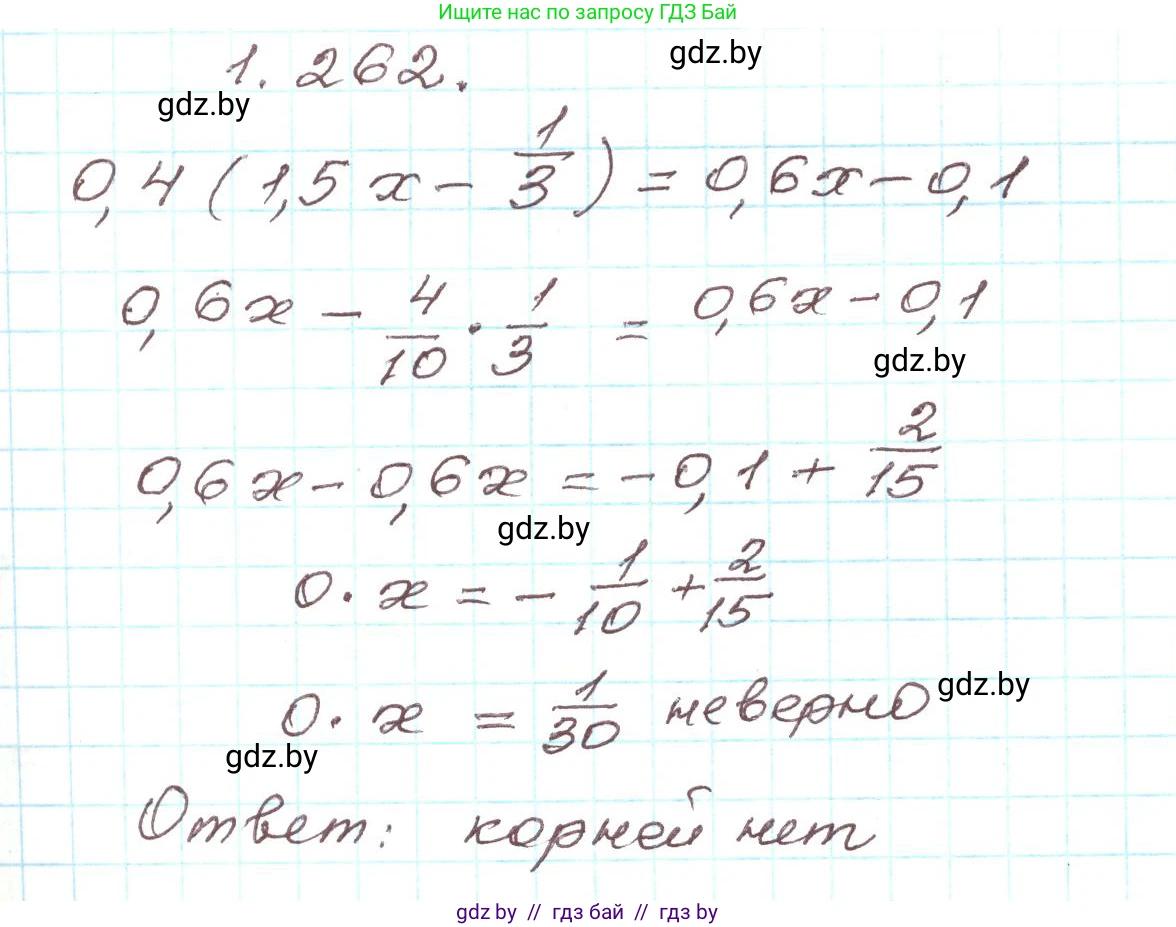 Ищите нас по запросу ГДЗ Бай
1. 262.
gdz.by
gdz.by
0,4 (1,5x - 1/3) = 0,6x - 0,1
0,6x - 4/10 · 1/3 = 0,6x - 0,1
gdz.by
0,6x - 0,6x = -0,1 + 2/15
gdz.by
0 · x = - 1/10 + 2/15
0 · x = 1/30 неверно
gdz.by
gdz.by
Ответ: корней нет
gdz.by // гдз бай // гдз by